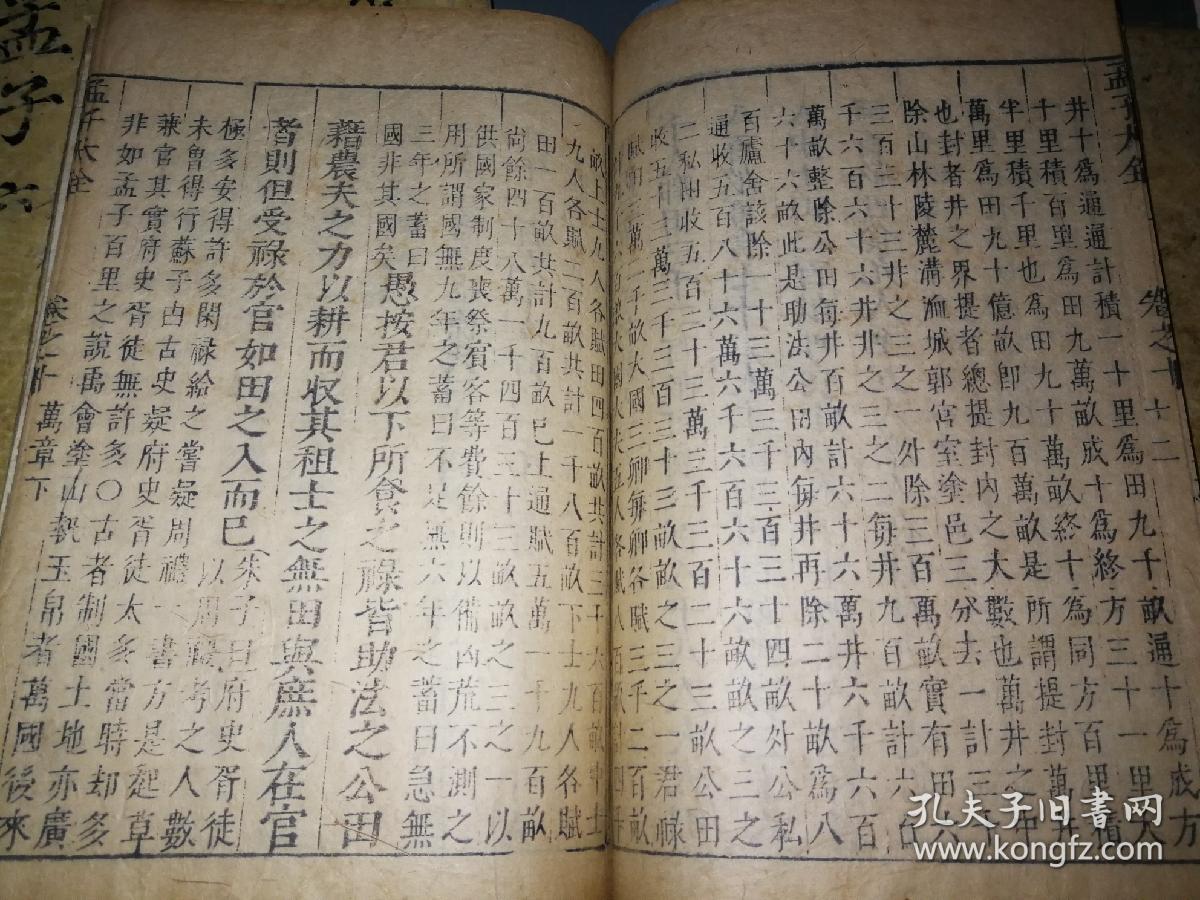 孟子大全
卷之十
十二
井十爲通通計積一十里爲田九千畝通十爲成方
十里積百里爲田九萬畝成十爲終方三十一里大
半里積千里也爲田九十萬畝終十爲同方百里積
萬里爲田九十億畝卽九百萬畝是所謂提封萬井
也封者井之界提者總提封內之大數也萬井之中
除山林陵麓溝洫城郭宮室塗邑三分去一計三千
三百三十三井三之一外除三百萬畝實有田六
千六百六十六井井之三之二每井九百畝計六百
萬畝整除公田每井百畝計六十六萬井六千六百
六十六畝此是助法公田內每井再除二十畝爲八
百廬舍該除一十三萬三千三百三十四畝外公私
通收五百八十六萬六千六百六十六畝畝之三之
二私田收五百三十三萬三千三百二十三畝公田
收五十三萬三千三百三十三畝之三之一君祿
田三萬二千畝大國三卿每卿各賦三千二百畝
畝上士九人各賦田四百畝共計三千六百畝中士
九人各賦二百畝共計一千八百畝下士九人各賦
田一百畝共計九百畝已上通賦五萬一十九百畝
尚餘四十八萬一千四百三十三畝之三之一以
供國家制度喪祭賓客等費餘則以備凶荒不測之
用所謂國無九年之蓄曰不足無六年之蓄曰急無
三年之蓄曰
國非其國矣愚按君以下所食之祿皆助法之公田
藉農夫之力以耕而收其租士之無田與庶人在官
者則但受祿於官如田之入而已朱子曰府史胥徒
以周禮考之人數
極多安得許多閑祿給之嘗疑周禮一書方是起草
未曾得行蘇子由古史疑府史胥徒太多當時却多
兼官其實府史胥徒無許多○古者制國土地亦廣
非如孟子百里之說禹會塗山執玉帛者萬國後來
孟子大全
卷之十
萬章下
孟子
六
孔夫子旧書网
www.kongfz.com